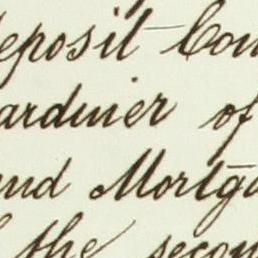 deposit Con
ardiner of
and Mortga
the secon